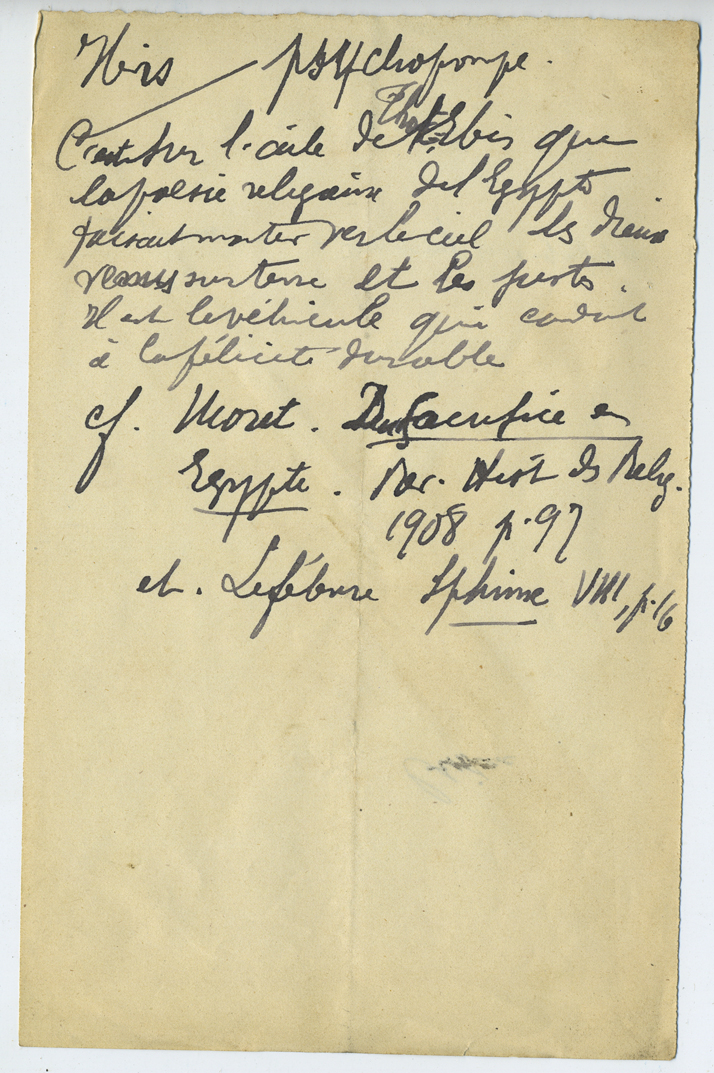 Ibis psychopompe.
C'est sur l'aile de Thot-Ibis que
la poésie religieuse de l'Egypte
faisait monter vers le ciel les dieux
venus sur terre et les justes.
Il est le véhicule qui conduit
à la félicité durable
cf. Moret. Du Sacrifice en
Egypte. Rev. Hist. des Relig.
1908 p. 97
et. Lefébure Sphinx VIII, p. 16